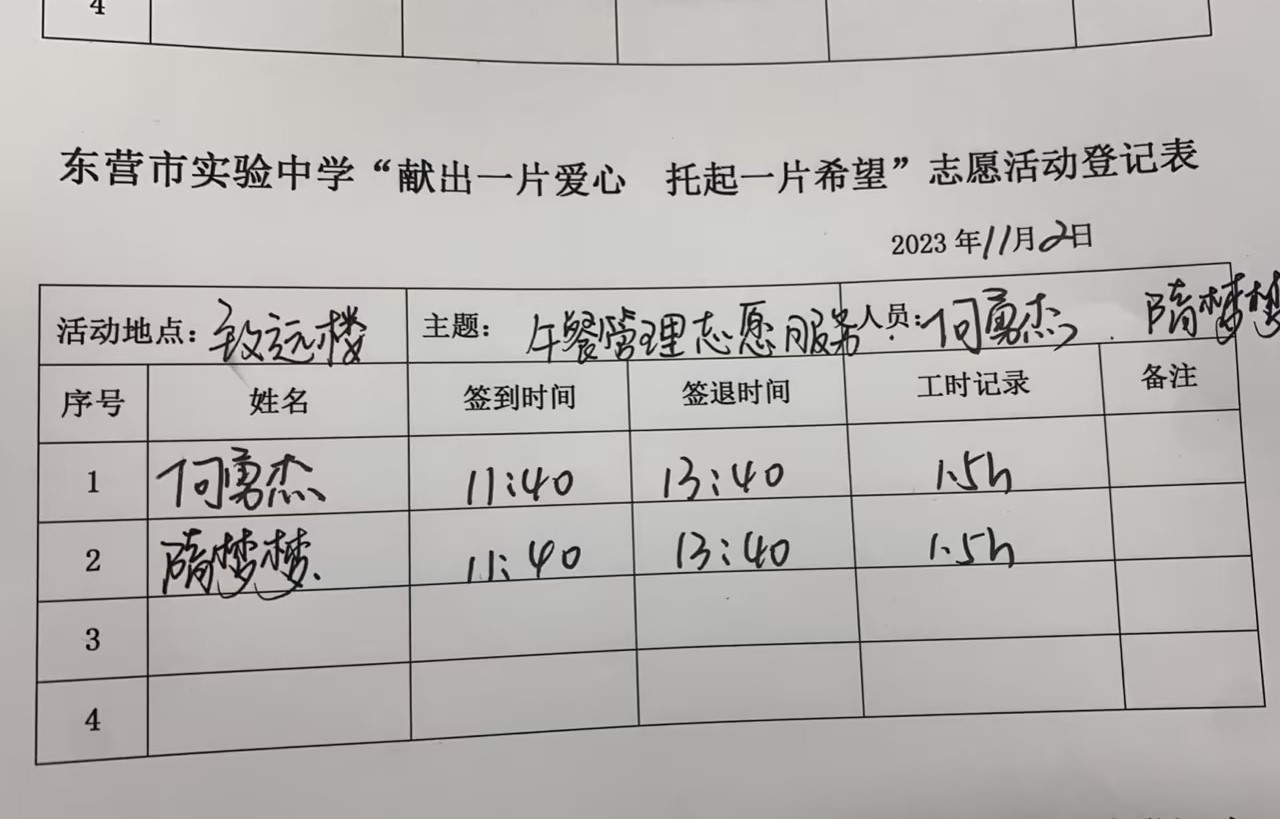 4
东营市实验中学“献出一片爱心 托起一片希望”志愿活动登记表
2023 年11月2日
活动地点：致远楼 主题： 午餐管理志愿服务. 人员：何勇杰、隋梦梦
序号 姓名 签到时间 签退时间 工时记录 备注
1 何勇杰 11:40 13:40 1.5h
2 隋梦梦 11:40 13:40 1.5h
3
4